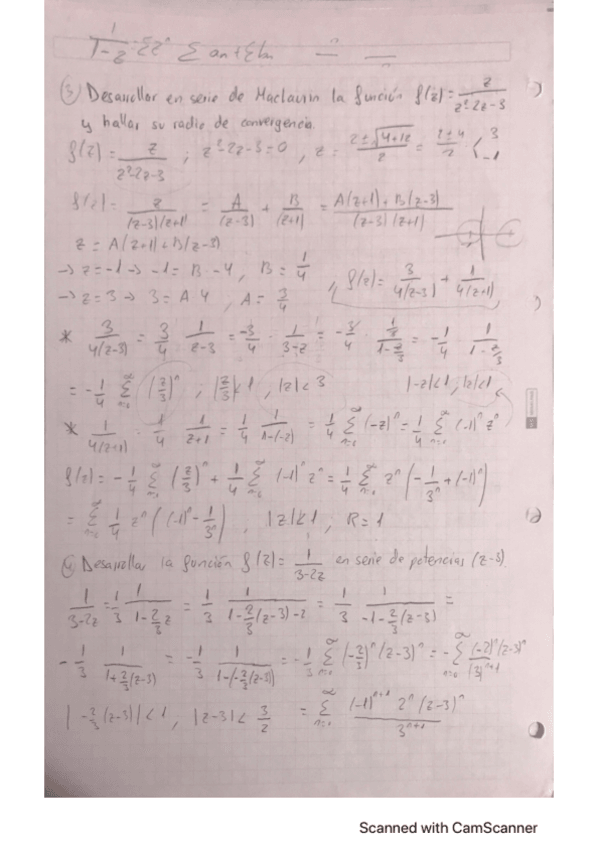 1/(1-z) = Σz^n   Σ an + Σ bn
(3) Desarrollar en serie de Maclaurin la función f(z) = z/(z²-2z-3)
y hallar su radio de convergencia.
f(z) = z/(z²-2z-3) ; z²-2z-3=0 , z = (2±√(4+12))/2 = (2±4)/2 < 3 -1
f(z) = z/((z-3)(z+1)) = A/(z-3) + B/(z+1) = (A(z+1)+B(z-3))/((z-3)(z+1))
z = A(z+1)+B(z-3)
→ z=-1 → -1 = B·-4 , B = 1/4
→ z=3 → 3 = A·4 , A = 3/4 , f(z) = 3/(4(z-3)) + 1/(4(z+1))
* 3/(4(z-3)) = 3/4 · 1/(z-3) = -3/4 · 1/(3-z) = -3/4 · (1/3)/(1-z/3) = -1/4 · 1/(1-z/3)
= -1/4 Σ_{n=0}^∞ (z/3)^n ; |z/3|<1 , |z|<3   |-z|<1, |z|<1
* 1/(4(z+1)) = 1/4 · 1/(z+1) = 1/4 · 1/(1-(-z)) = 1/4 Σ_{n=0}^∞ (-z)^n = 1/4 Σ_{n=0}^∞ (-1)^n z^n
f(z) = -1/4 Σ_{n=0}^∞ (z/3)^n + 1/4 Σ_{n=0}^∞ (-1)^n z^n = 1/4 Σ_{n=0}^∞ z^n (-1/3^n + (-1)^n)
= Σ_{n=0}^∞ 1/4 z^n ((-1)^n - 1/3^n) , |z|<1 , R=1
(4) Desarrollar la función f(z) = 1/(3-2z) en serie de potencias (z-3).
1/(3-2z) = 1/3 · 1/(1-2/3 z) = 1/3 · 1/(1-2/3(z-3)-2) = 1/3 · 1/(-1-2/3(z-3)) =
-1/3 · 1/(1+2/3(z-3)) = -1/3 · 1/(1-(-2/3(z-3))) = -1/3 Σ_{n=0}^∞ (-2/3)^n (z-3)^n = -Σ_{n=0}^∞ (-2)^n (z-3)^n/(3)^{n+1}
|-2/3(z-3)|<1 , |z-3|< 3/2   = Σ_{n=0}^∞ (-1)^{n+1} 2^n (z-3)^n/3^{n+1}
Scanned with CamScanner